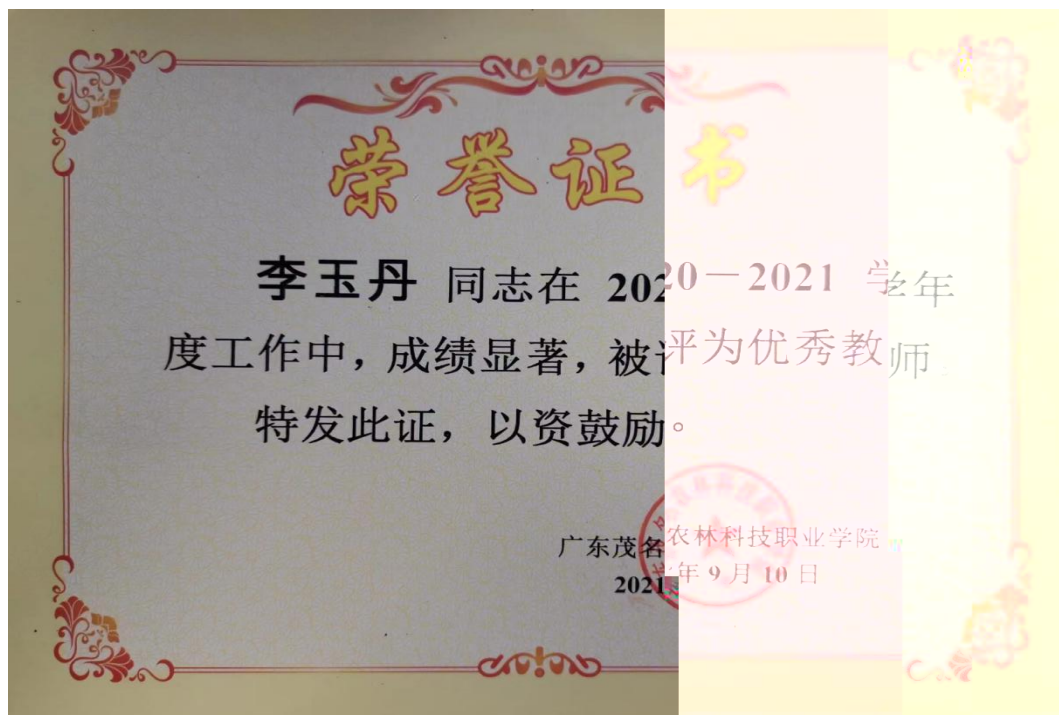 荣誉证书
李玉丹 同志在 2020－2021 学年
度工作中，成绩显著，被评为优秀教师
特发此证，以资鼓励。
广东茂名农林科技职业学院
2021年9月10日